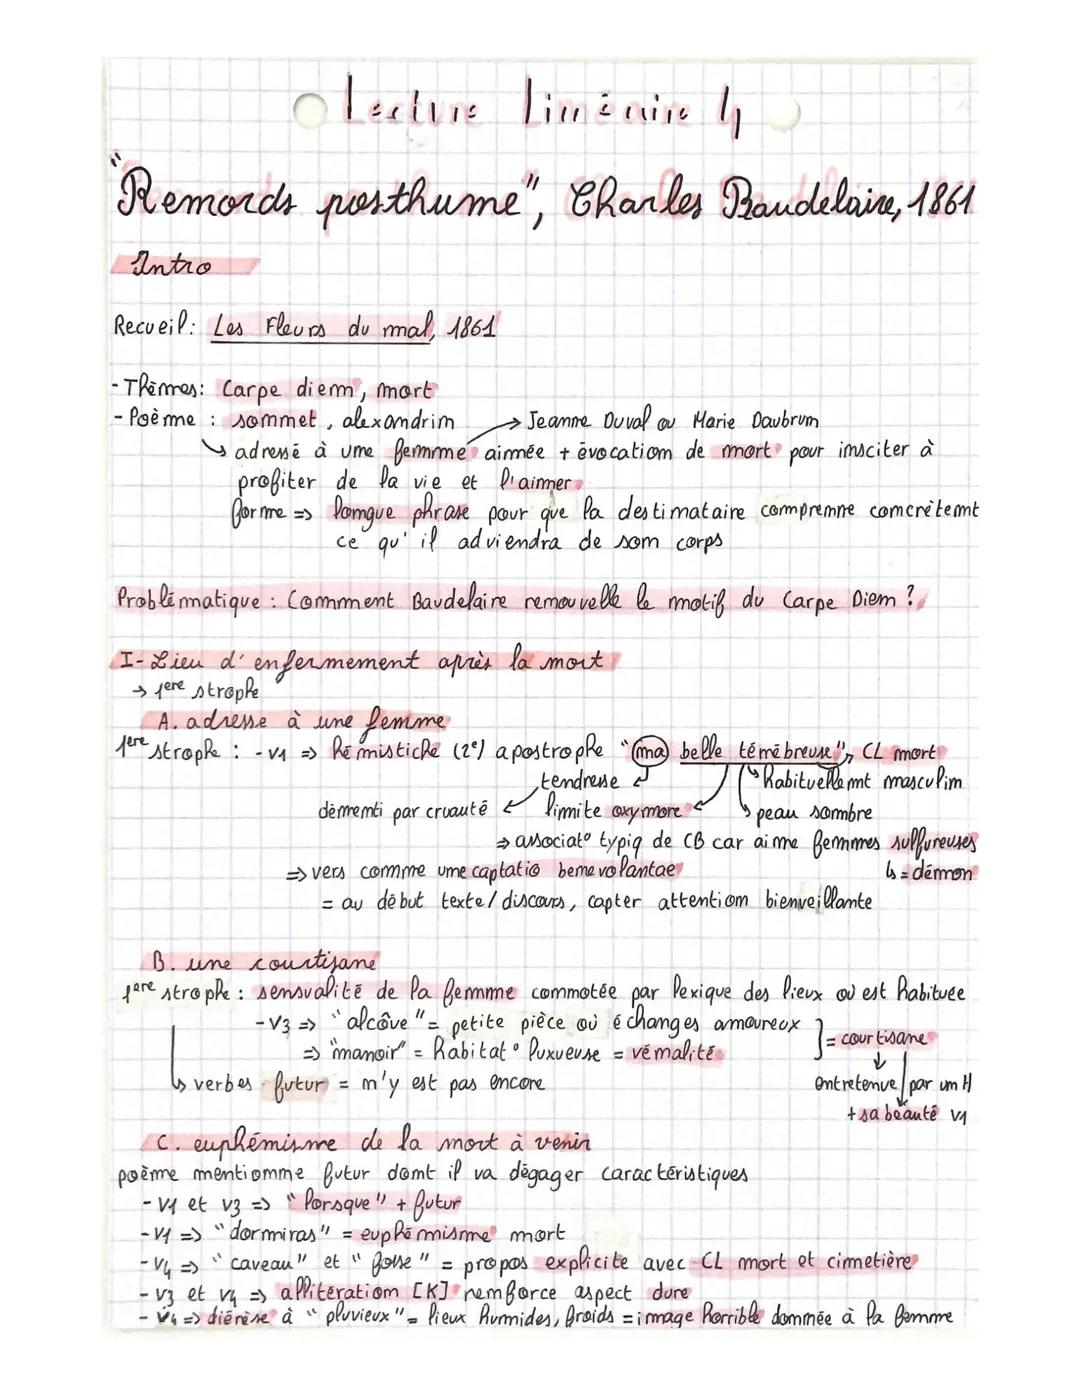 Lecture Linéaire 4
"Remords posthume", Charles Baudelaire, 1861
Intro
Recueil: Les Fleurs du mal, 1861
- Thèmes: Carpe diem, mort
- Poème : sonnet, alexandrin → Jeanne Duval ou Marie Daubrun
↳ adressé à une femme aimée + évocation de mort pour insciter à
profiter de la vie et l'aimer
forme => longue phrase pour que la destinataire comprenne concrètemt
ce qu'il adviendra de son corps
Problématique : Comment Baudelaire renouvelle le motif du Carpe Diem ?
I- Lieu d'enfermement après la mort
→ 1ere strophe
A. adresse à une femme
1ere strophe : - v1 => hémistiche (2e) apostrophe "ma belle ténébreuse", CL mort
tendresse ↳ habituellemt masculin
démenti par cruauté limite oxymore ↳ peau sombre
=> associat° typiq de CB car aime femmes sulfureuses
=> vers comme une captatio benevolantae ↳ = démon
= au début texte/discours, capter attention bienveillante
B. une courtisane
1ere strophe : sensualité de la femme connotée par lexique des lieux où est habituée
- v3 => "alcôve" = petite pièce où échanges amoureux
=> "manoir" = habitat° luxueuse = vénalité = courtisane
↳ verbes futur = m'y est pas encore entretenue par un H
+ sa beauté v1
C. euphémisme de la mort à venir
poème mentionne futur dont il va dégager caractéristiques
- v1 et v3 => "lorsque" + futur
- v1 => "dormiras" = euphémisme mort
- v4 => "caveau" et "fosse" = propos explicite avec CL mort et cimetière
- v3 et v4 => allitération [K] renforce aspect dure
- v4 => diérèse à "pluvieux" = lieux humides, froids = image horrible donnée à la femme